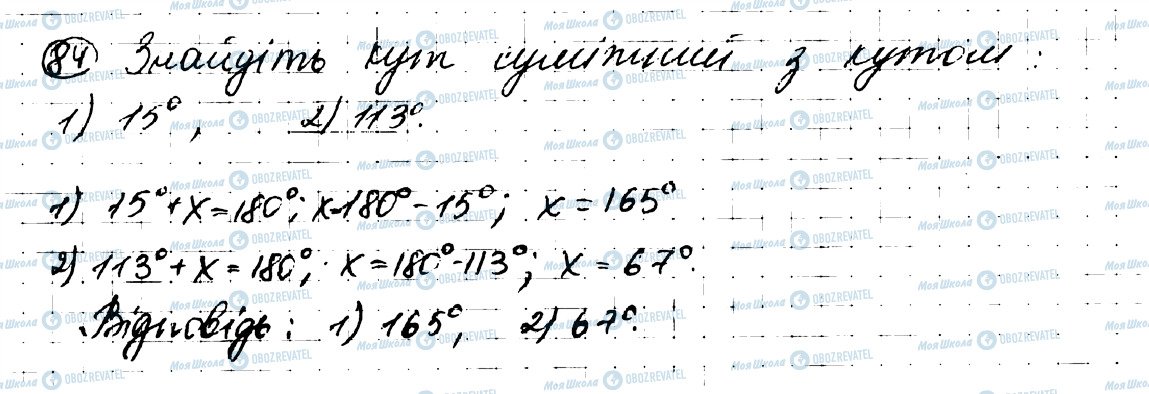 84 Знайдіть кут суміжний з кутом:
1) 15°, 2) 113°.
1) 15° + x = 180°; x=180° - 15°; x = 165°
2) 113° + x = 180°; x = 180° - 113°; x = 67°.
Відповідь: 1) 165°, 2) 67°.